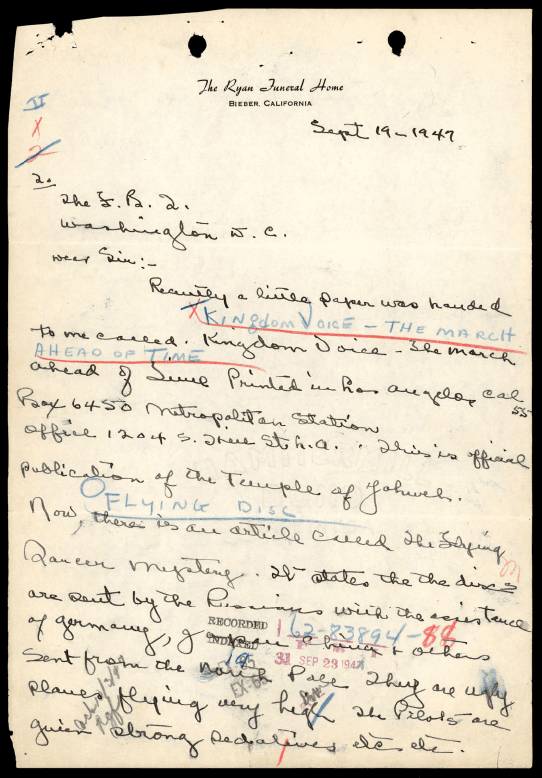 The Ryan Funeral Home
BIEBER, CALIFORNIA
Sept 19-1947
V
X
2
To
The F. B. I.
Washington D. C.
Dear Sir:-
Recently a little paper was handed
X KINGDOM VOICE - THE MARCH
to me called. Kingdom Voice - The March
AHEAD OF TIME
ahead of Time Printed in Los Angelos, Cal
55
Box 6450 Metropolitan Station
Office 1204 S. Hill St L.A. . This is official
publication of the Temple of Yahweh.
FLYING DISC
Now, there is an article called The Flying
Saucer Mystery. It states the the discs
are sent by the Russians with the assistance
of Germany, Japan China & others
RECORDED
INDEXED
62-83894-88
31 SEP 23 1947
EX-
sent from the North Pole They are
planes flying very high The Pilots are
given strong sedatives etc etc.